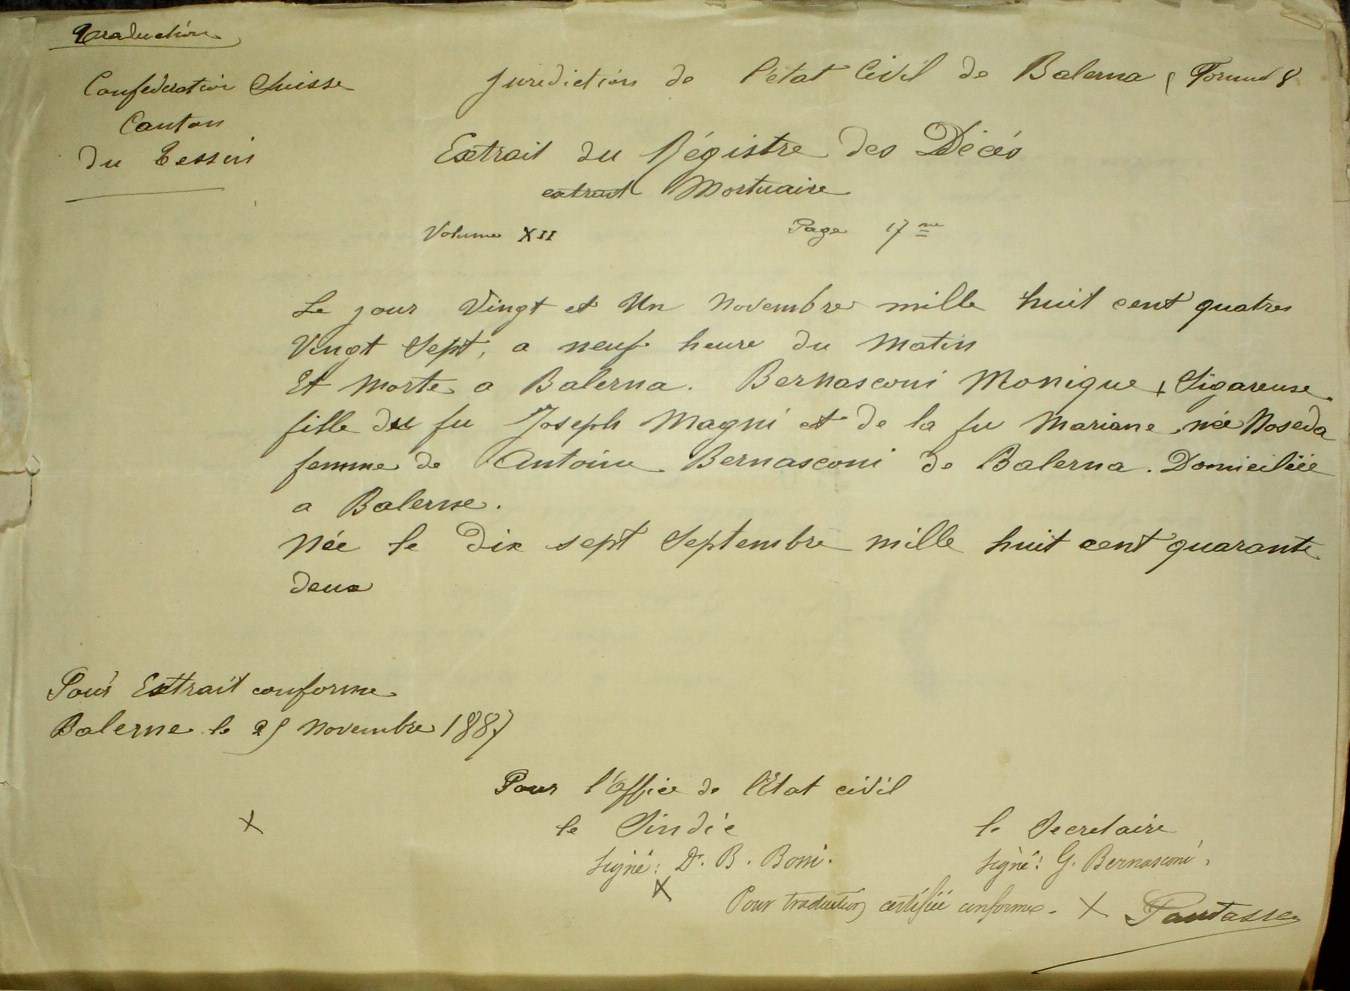 Traduction
Confédération Suisse
Canton
du Tessin
Juridiction de l'état Civil de Balerna, Format 8
Extrait du Régistre des Décés
extrait Mortuaire
Volume XII Page 17me
Le jour Vingt et Un Novembre mille huit cent quatres
Vingt Sept, a neuf heure du Matin
Et Morte a Balerna. Bernasconi Monique, Sigareuse
fille du fu Joseph Magni et de la fu Mariane née Noseda
femme de Antoine Bernasconi de Balerna. Domiciliée
a Balerne.
Née le Dix sept Septembre mille huit cent quarante
deux
Pour Extrait conforme
Balerne le 25 Novembre 1887
Pour l'Office de l'Etat civil
le Sindic le Secretaire
Signé: Dr. B. Boni. Signé: G. Bernasconi.
Pour traduction certifiée conforme. X